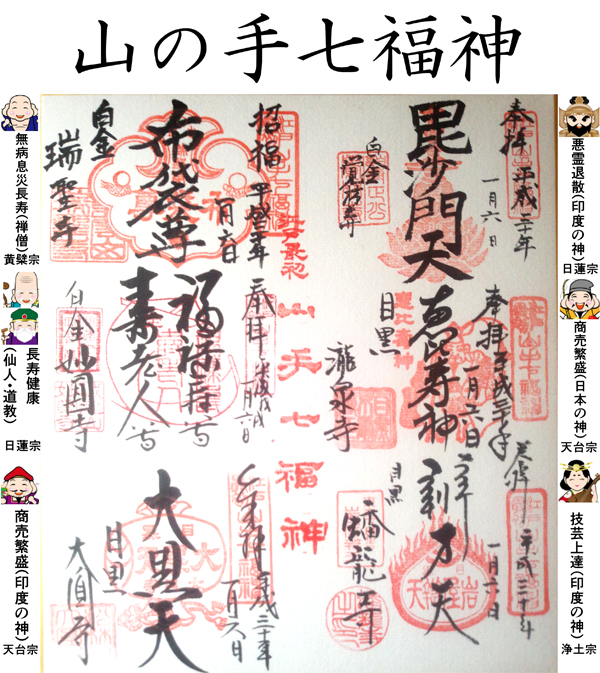 山の手七福神
悪霊退散(印度の神)
日蓮宗
商売繁盛(日本の神)
天台宗
技芸上達(印度の神)
浄土宗
無病息災長寿(禅僧)
黄檗宗
長寿健康
(仙人・道教)
日蓮宗
商売繁盛(印度の神)
天台宗
奉拝 平成三十年
一月六日
毘沙門天
白金
覚林寺
奉拝 平成三十年
一月六日
恵比寿神
目黒
瀧泉寺
平成三十年
一月六日
弁才天
目黒
蟠龍寺
江戸最初
山手七福神
招福
布袋尊
白金
瑞聖寺
奉拝
一月六日
福禄寿尊
寿老人尊
白金
妙圓寺
奉拝 平成三十年
一月六日
大黒天
目黒
大圓寺